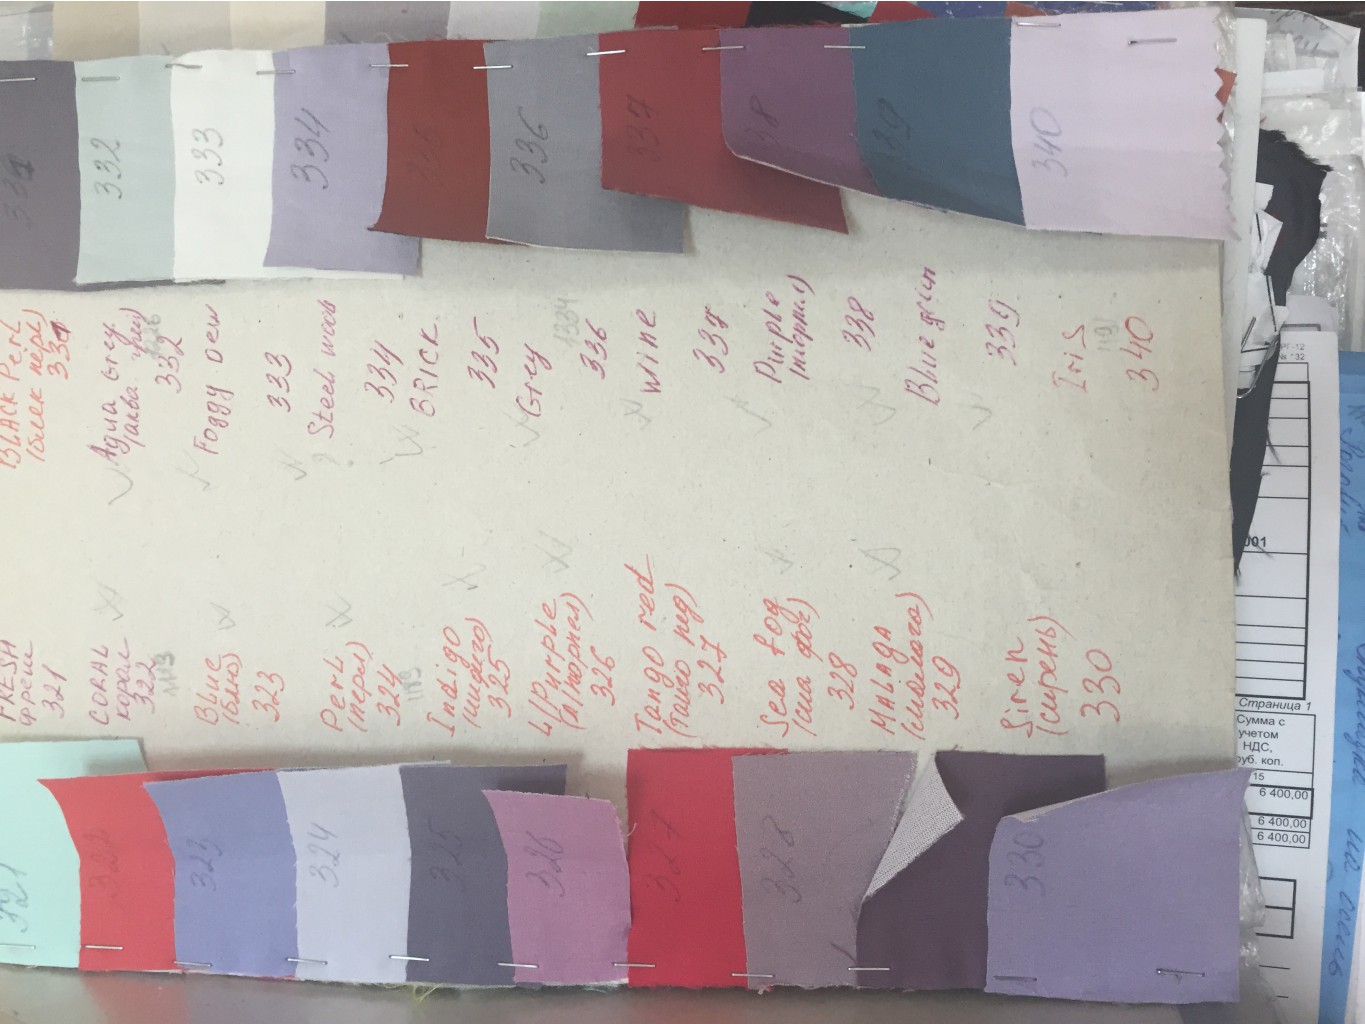 332
333
334
336
337
338
339
340
BLACK Perl
(блек перл)
331
Aqua Grey
(аква грей)
332
Foggy Dew
333
Steel wool
334
BRICK
335
Grey
1334
336
Wine
337
Purple
(пюрпил)
338
Blue grin
339
Iris
1191
340
FRESH
фреш
321
CORAL
корал
322
1113
Blue
(блю)
323
Perl
(перл)
324
1193
Indigo
(индиго)
325
L/Purple
(л/порпел)
326
Tango red
(Танго ред)
327
Sea fog
(сиа фог)
328
MALAGA
(малага)
329
Siren
(сирень)
330
321
322
323
324
325
326
327
328
330
Страница 1
Сумма с
учетом
НДС,
руб. коп.
15
6 400,00
6 400,00
6 400,00